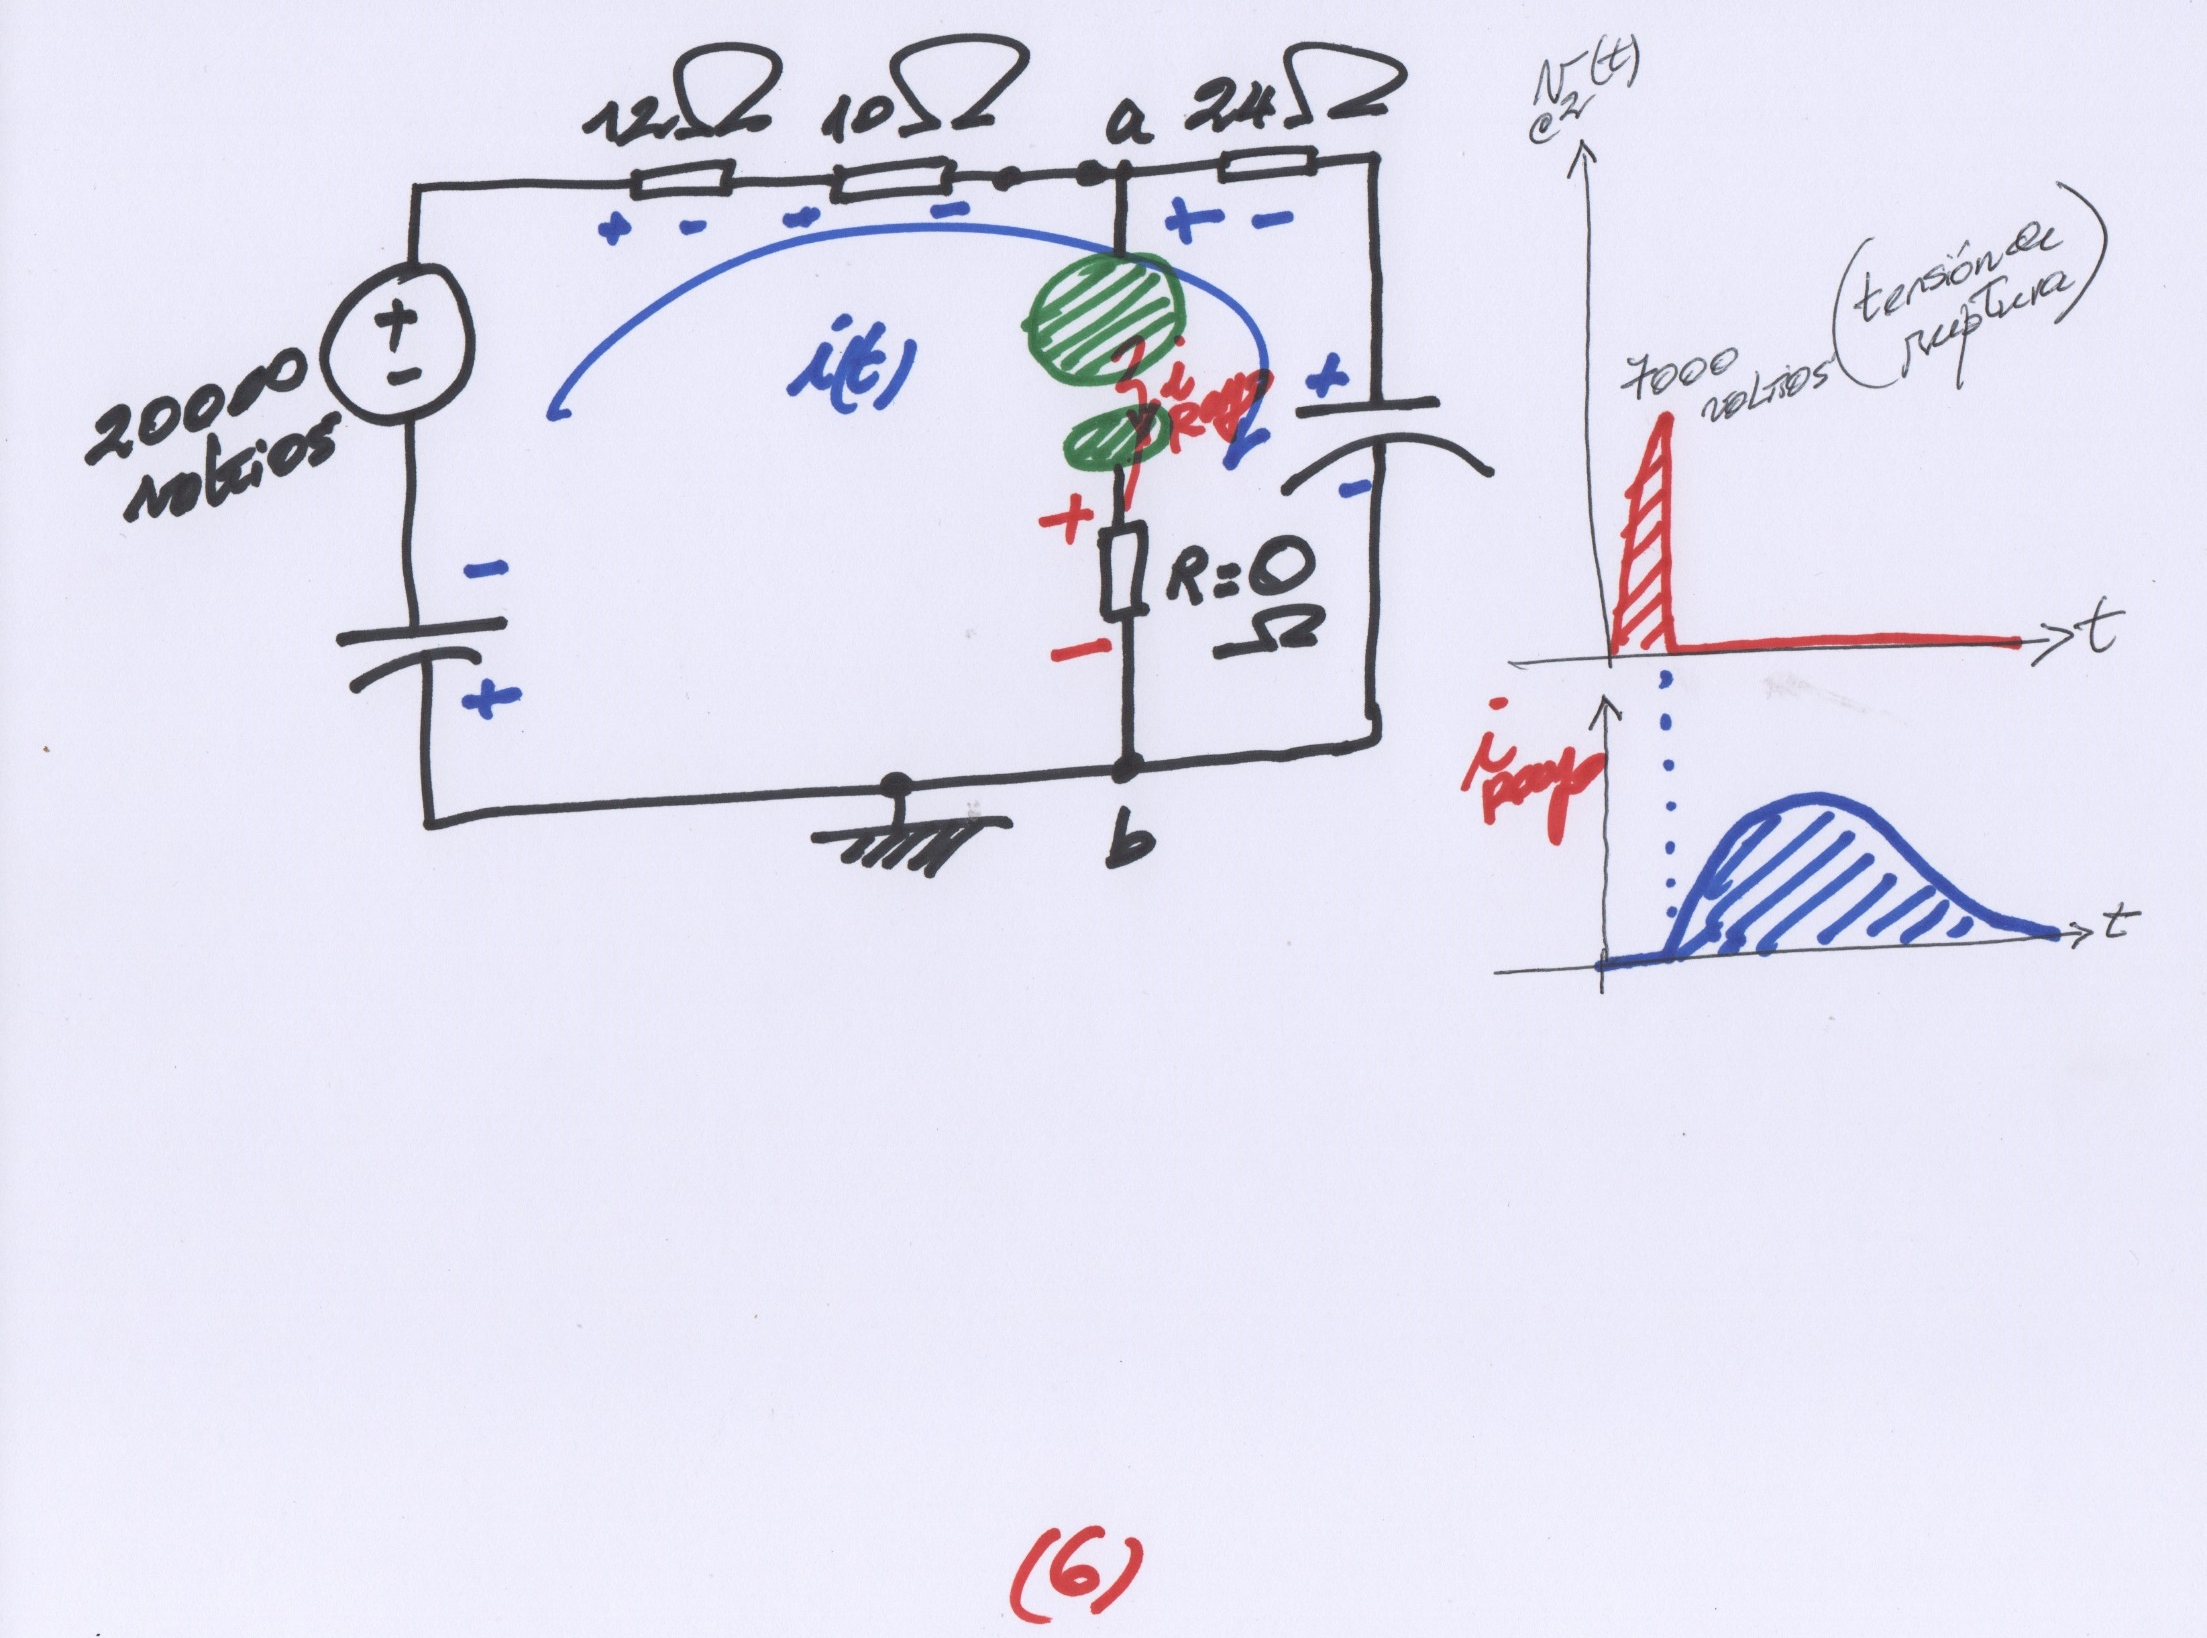 12Ω 10Ω a 24Ω
+ - + - + -
+
-
20000
voltios
i(t)
i
Rayo
+
-
+
-
R=0
Ω
-
+
b
v (t)
c2
7000
voltios
(tensión de
ruptura)
t
i
Rayo
t
(6)